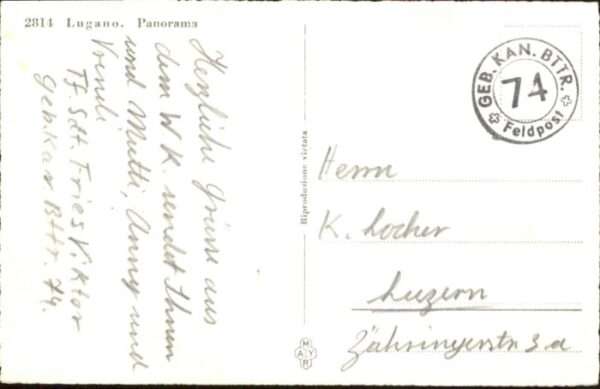 2814 Lugano. Panorama
Herzliche Grüsse aus
dem W.K. sendet Ihnen
und Mutti, Anny und
Vreneli
Tf. Sdt. Fries Viktor
Geb. Kan. Bttr. 74.
Riproduzione vietata
MAYR
GEB. KAN. BTTR.
74
Feldpost
Herrn
K. Locher
Luzern
Zähringerstr 3a